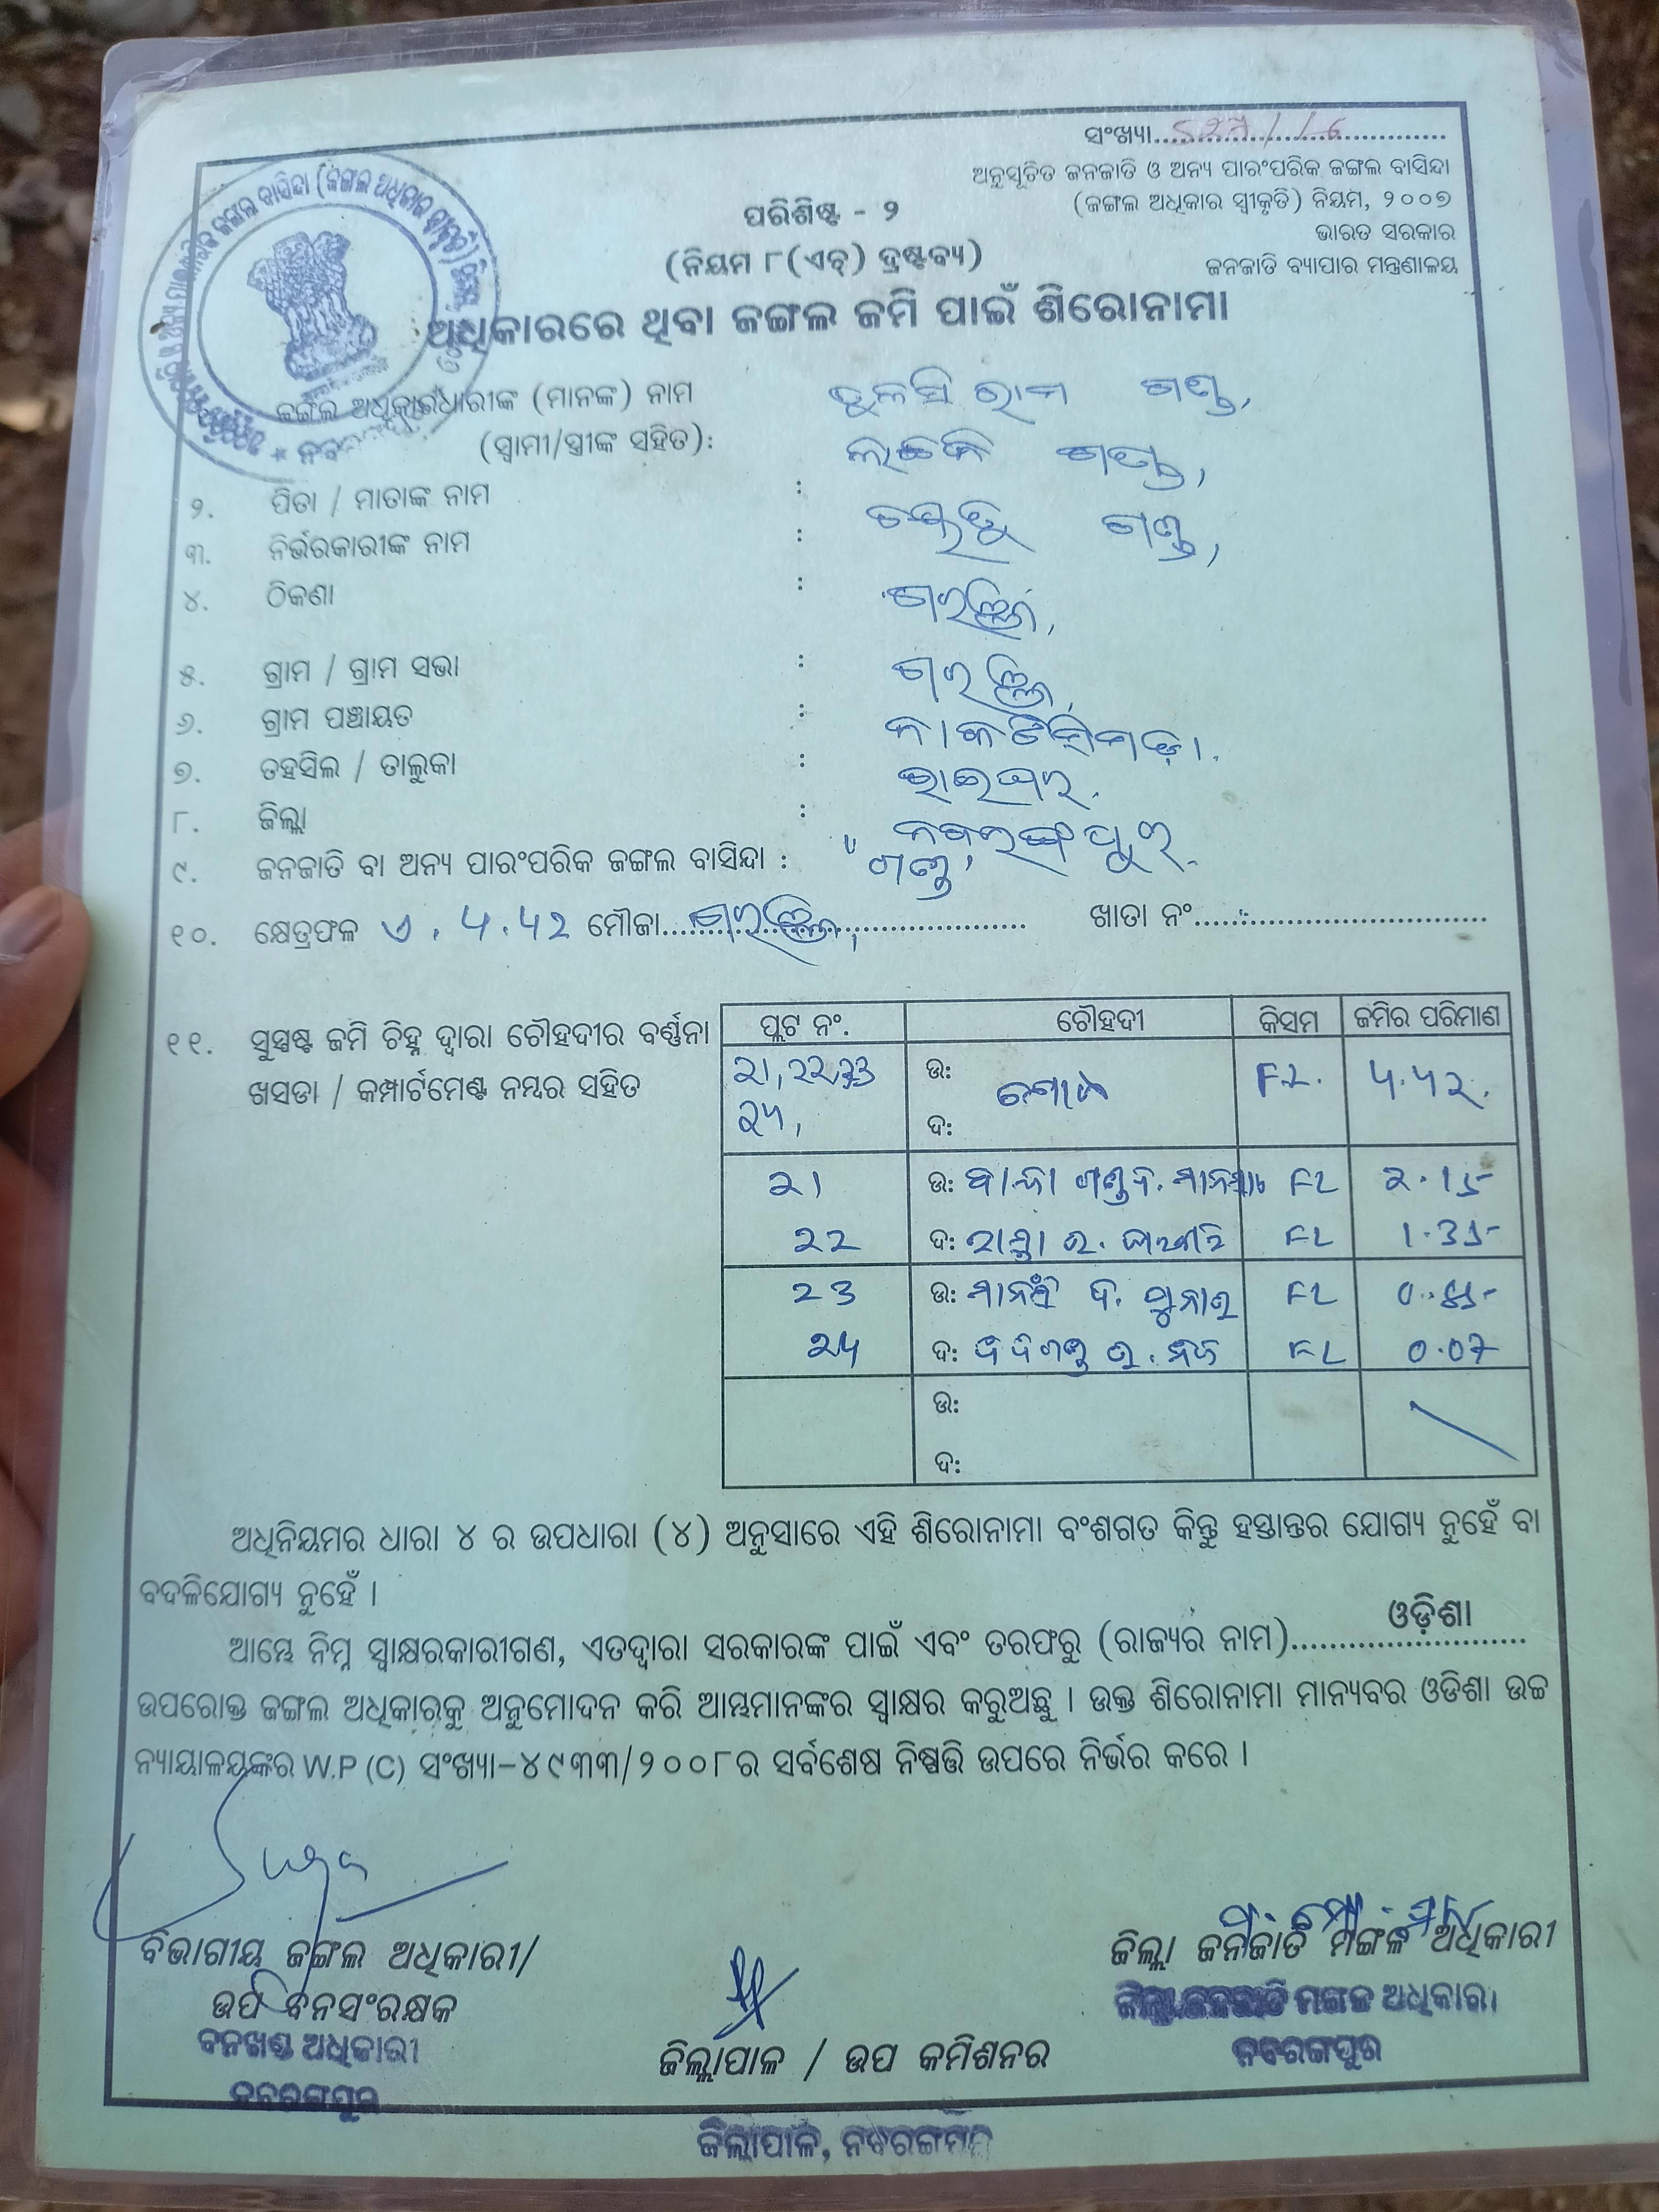 ସଂଖ୍ୟା
ଅନୁସୂଚିତ ଜନଜାତି ଓ ଅନ୍ୟ ପାରଂପରିକ ଜଙ୍ଗଲ ବାସିନ୍ଦା
(ଜଙ୍ଗଲ ଅଧିକାର ସ୍ୱୀକୃତି) ନିୟମ, ୨୦୦୭
ଭାରତ ସରକାର
ଜନଜାତି ବ୍ୟାପାର ମନ୍ତ୍ରଣାଳୟ
ପରିଶିଷ୍ଟ - ୨
(ନିୟମ ୮(ଏଚ୍) ଦ୍ରଷ୍ଟବ୍ୟ)
ଅଧିକାରରେ ଥିବା ଜଙ୍ଗଲ ଜମି ପାଇଁ ଶିରୋନାମା
ଜଙ୍ଗଲ ଅଧିକାରଧାରୀଙ୍କ (ମାନଙ୍କ) ନାମ ତୁଳସି ରାମ ଗଣ୍ଡ,
(ସ୍ୱାମୀ/ସ୍ତ୍ରୀଙ୍କ ସହିତ): ଗଣ୍ଡ,
୨. ପିତା / ମାତାଙ୍କ ନାମ : ଗଣ୍ଡ,
୩. ନିର୍ଭରକାରୀଙ୍କ ନାମ :
୪. ଠିକଣା :
୫. ଗ୍ରାମ / ଗ୍ରାମ ସଭା :
୬. ଗ୍ରାମ ପଞ୍ଚାୟତ :
୭. ତହସିଲ / ତାଲୁକା : ରାଇଘର.
୮. ଜିଲ୍ଲା : ନବରଙ୍ଗପୁର.
୯. ଜନଜାତି ବା ଅନ୍ୟ ପାରଂପରିକ ଜଙ୍ଗଲ ବାସିନ୍ଦା : ଗଣ୍ଡ,
୧୦. କ୍ଷେତ୍ରଫଳ ଏ. 4.42 ମୌଜା ଖାତା ନଂ
୧୧. ସୁସ୍ପଷ୍ଟ ଜମି ଚିହ୍ନ ଦ୍ୱାରା ଚୌହଦୀର ବର୍ଣ୍ଣନା
ଖସଡା / କମ୍ପାର୍ଟମେଣ୍ଟ ନମ୍ବର ସହିତ
ପ୍ଲଟ ନଂ. ଚୌହଦୀ କିସମ ଜମିର ପରିମାଣ
21, 22, 23 ଉ: FL. 4.42.
24, ଦ:
21 ଉ: FL 2.15
22 ଦ: FL 1.35
23 ଉ: FL
24 ଦ: FL 0.07
ଉ:
ଦ:
ଅଧିନିୟମର ଧାରା ୪ ର ଉପଧାରା (୪) ଅନୁସାରେ ଏହି ଶିରୋନାମା ବଂଶଗତ କିନ୍ତୁ ହସ୍ତାନ୍ତର ଯୋଗ୍ୟ ନୁହେଁ ବା
ବଦଳିଯୋଗ୍ୟ ନୁହେଁ ।
ଆମ୍ଭେ ନିମ୍ନ ସ୍ୱାକ୍ଷରକାରୀଗଣ, ଏତଦ୍ୱାରା ସରକାରଙ୍କ ପାଇଁ ଏବଂ ତରଫରୁ (ରାଜ୍ୟର ନାମ) ଓଡ଼ିଶା
ଉପରୋକ୍ତ ଜଙ୍ଗଲ ଅଧିକାରକୁ ଅନୁମୋଦନ କରି ଆମ୍ଭମାନଙ୍କର ସ୍ୱାକ୍ଷର କରୁଅଛୁ । ଉକ୍ତ ଶିରୋନାମା ମାନ୍ୟବର ଓଡିଶା ଉଚ୍ଚ
ନ୍ୟାୟାଳୟଙ୍କର W.P (C) ସଂଖ୍ୟା-୪୯୩୩/୨୦୦୮ର ସର୍ବଶେଷ ନିଷ୍ପତ୍ତି ଉପରେ ନିର୍ଭର କରେ ।
ବିଭାଗୀୟ ଜଙ୍ଗଲ ଅଧିକାରୀ/
ଉପ ବନସଂରକ୍ଷକ
ବନଖଣ୍ଡ ଅଧିକାରୀ
ନବରଙ୍ଗପୁର
ଜିଲ୍ଲାପାଳ / ଉପ କମିଶନର
ଜିଲ୍ଲା ଜନଜାତି ମଙ୍ଗଳ ଅଧିକାରୀ
ଜିଲ୍ଲା ଜନଜାତି ମଙ୍ଗଳ ଅଧିକାରୀ
ନବରଙ୍ଗପୁର
ଜିଲ୍ଲାପାଳ, ନବରଙ୍ଗପୁର